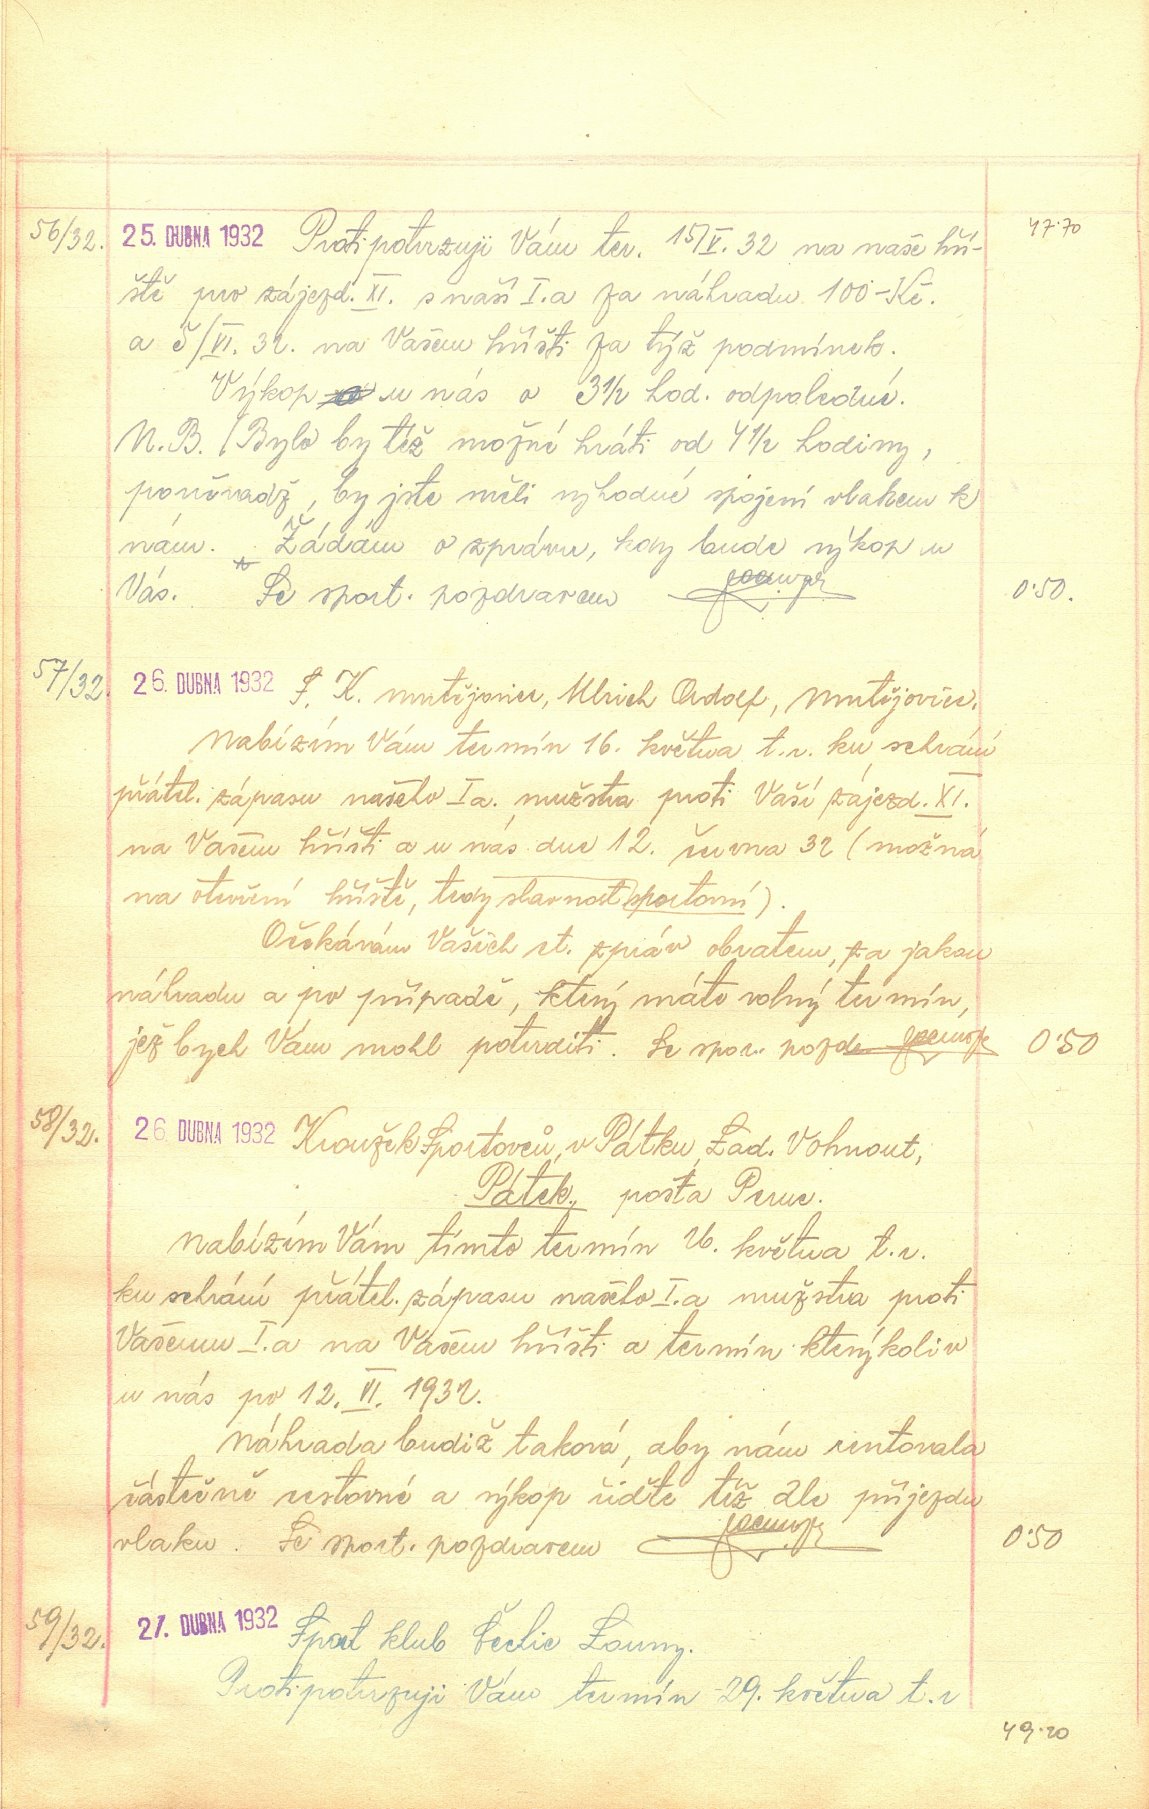 47·70
56/32. 25. DUBNA 1932 Protipotvrzuji Vám ter. 15/V. 32 na naše hři-
ště pro zájezd. XI. s naší I.a za náhradu 100-Kč.
a 5/VI. 32. na Vašem hřišti za týž podmínek.
Výkop u nás o 3 1/2 hod. odpoledne.
N.B. (Bylo by též možné hráti od 4 1/2 hodiny,
poněvadž, by jste měli výhodné spojení vlakem k
nám. Žádám o zprávu, kdy bude výkop u
Vás. Se sport. pozdravem 0·50.
57/32. 26. DUBNA 1932 S. K. Mutějovice, Ulrich Adolf, Mutějovice.
Nabízím Vám termín 16. května t.r. ku sehrání
přátel. zápasu našeho Ia. mužstva proti Vaší zájezd. XI.
na Vašem hřišti a u nás dne 12. června 32 (možná
na otevření hřiště, tedy slavnost sportovní).
Očekávám Vašich ct. zpráv obratem, za jakou
náhradu a po případě, který máte volný termín,
jež bych Vám mohl potvrditi. Se spor. pozd. 0·50
58/32. 26. DUBNA 1932 Kroužek Sportovců, v Pátku, Lad. Vohnout,
Pátek, pošta Peruc.
Nabízím Vám tímto termín 16. května t.r.
ku sehrání přátel. zápasu našeho I.a mužstva proti
Vašemu I.a na Vašem hřišti a termín kterýkoliv
u nás po 12. VI. 1932.
Náhrada budiž taková, aby nám rentovala
částečně cestovné a výkop řiďte též dle příjezdu
vlaku. Se sport. pozdravem 0·50
59/32. 27. DUBNA 1932 Sport klub Čechie Louny.
Protipotvrzuji Vám termín 29. května t.r
49·20